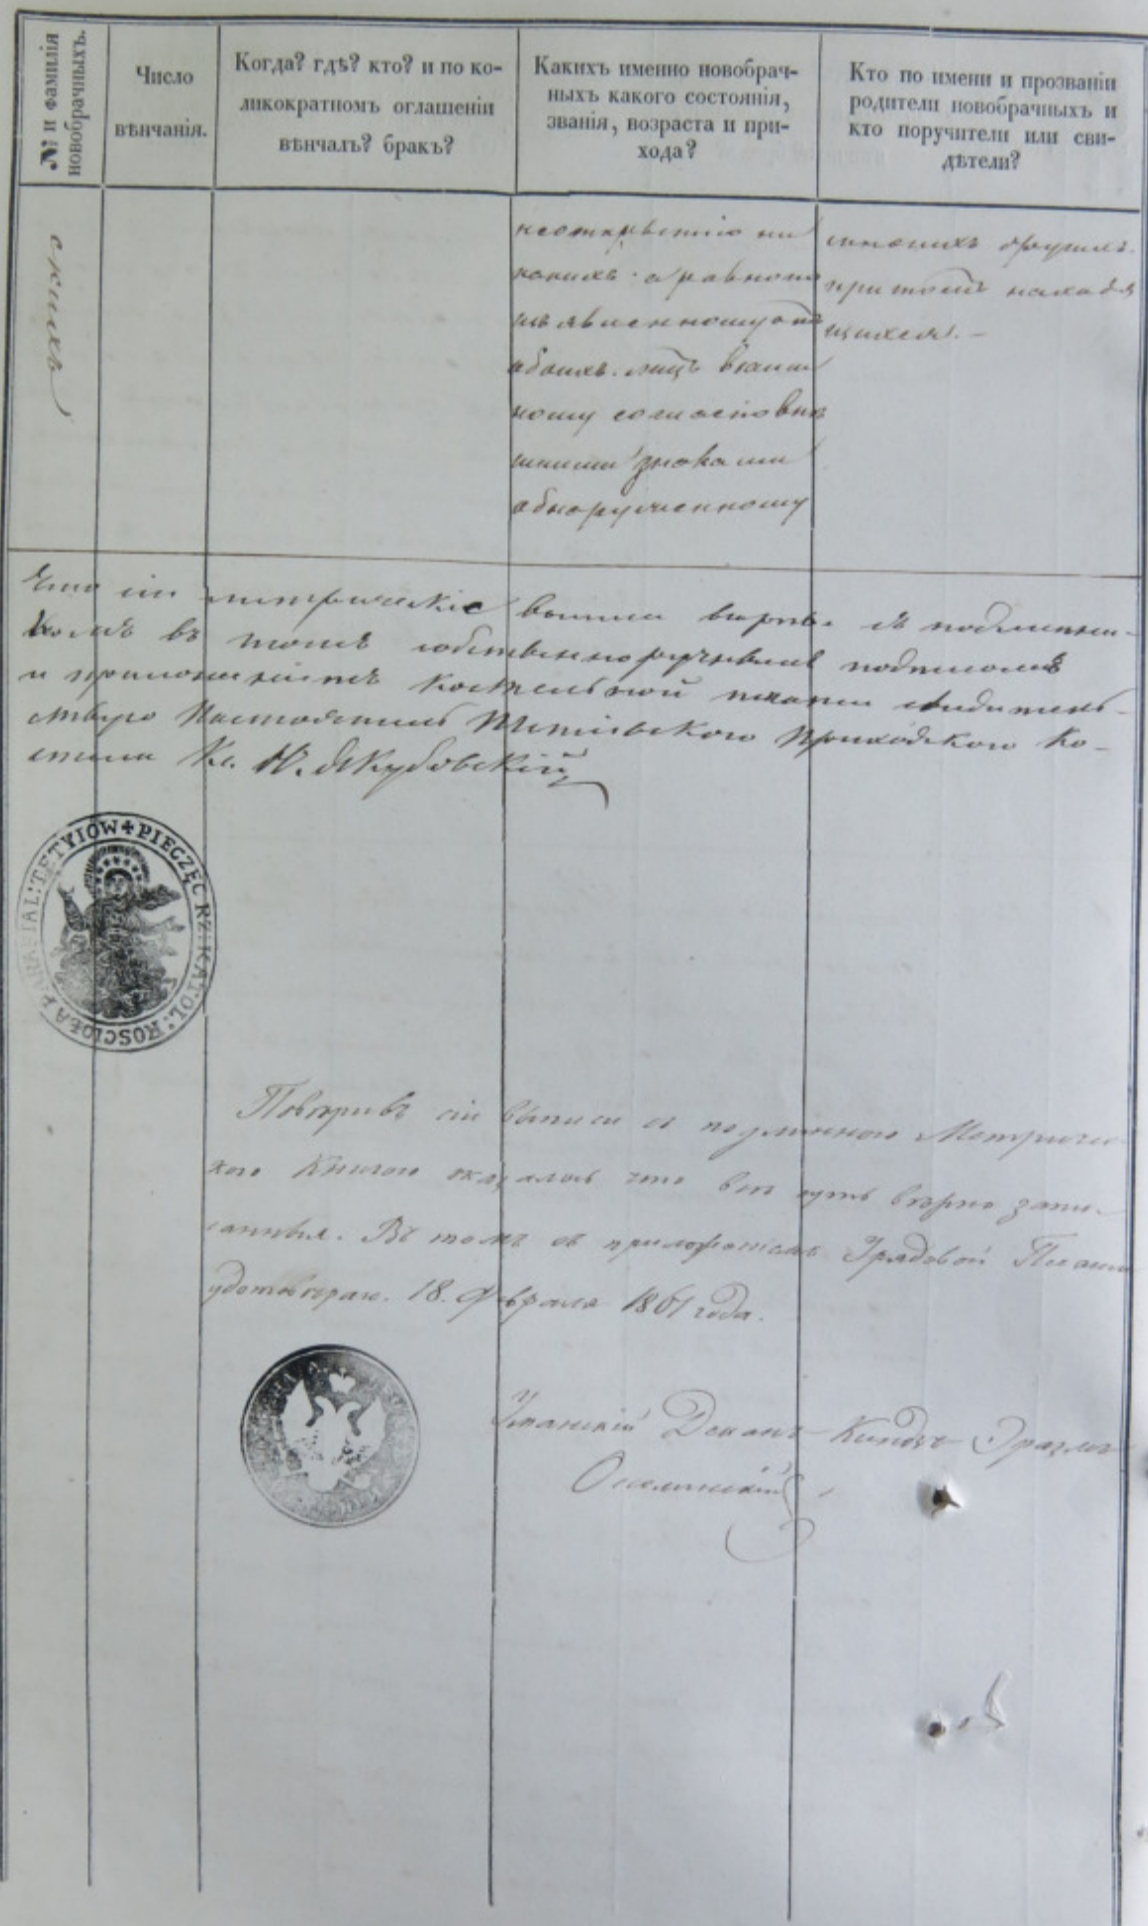 № и фамилія
новобрачныхъ.
Число
вѣнчанія.
Когда? гдѣ? кто? и по ко-
ликократномъ оглашеніи
вѣнчалъ? бракъ?
Какихъ именно новобрач-
ныхъ какого состоянія,
званія, возраста и при-
хода?
Кто по имени и прозванію
родители новобрачныхъ и
кто поручители или сви-
дѣтели?
скихъ
неоткрытію ни
какихъ а равно по
изъявленному отъ
обоихъ лицъ взаим
ному согласію внѣ
шними знаками
обнаруженному
многихъ другихъ
при томъ находя
щихся. -
Что сіи метрическіе выписи вѣрны съ подлинни-
комъ въ томъ собственноручнымъ подписомъ
и приложеніемъ костельной печати свидѣтель-
ствую Настоятель Тетіевскаго Приходскаго Ко-
стела Кс. Н. Якубовскій
TETYIOW + PIECZĘC RZ: KATOL: KOSCIOŁA PARAFIAL:
Повѣривъ сіи выписи съ подлинною Метричес
кою Книгою оказалось что всѣ суть вѣрно запи-
санныя. Въ томъ съ приложеніемъ Урядовой Печати
удостовѣряю. 18. Февраля 1861 года.
Уманскій Деканъ Ксендзъ Эразмъ